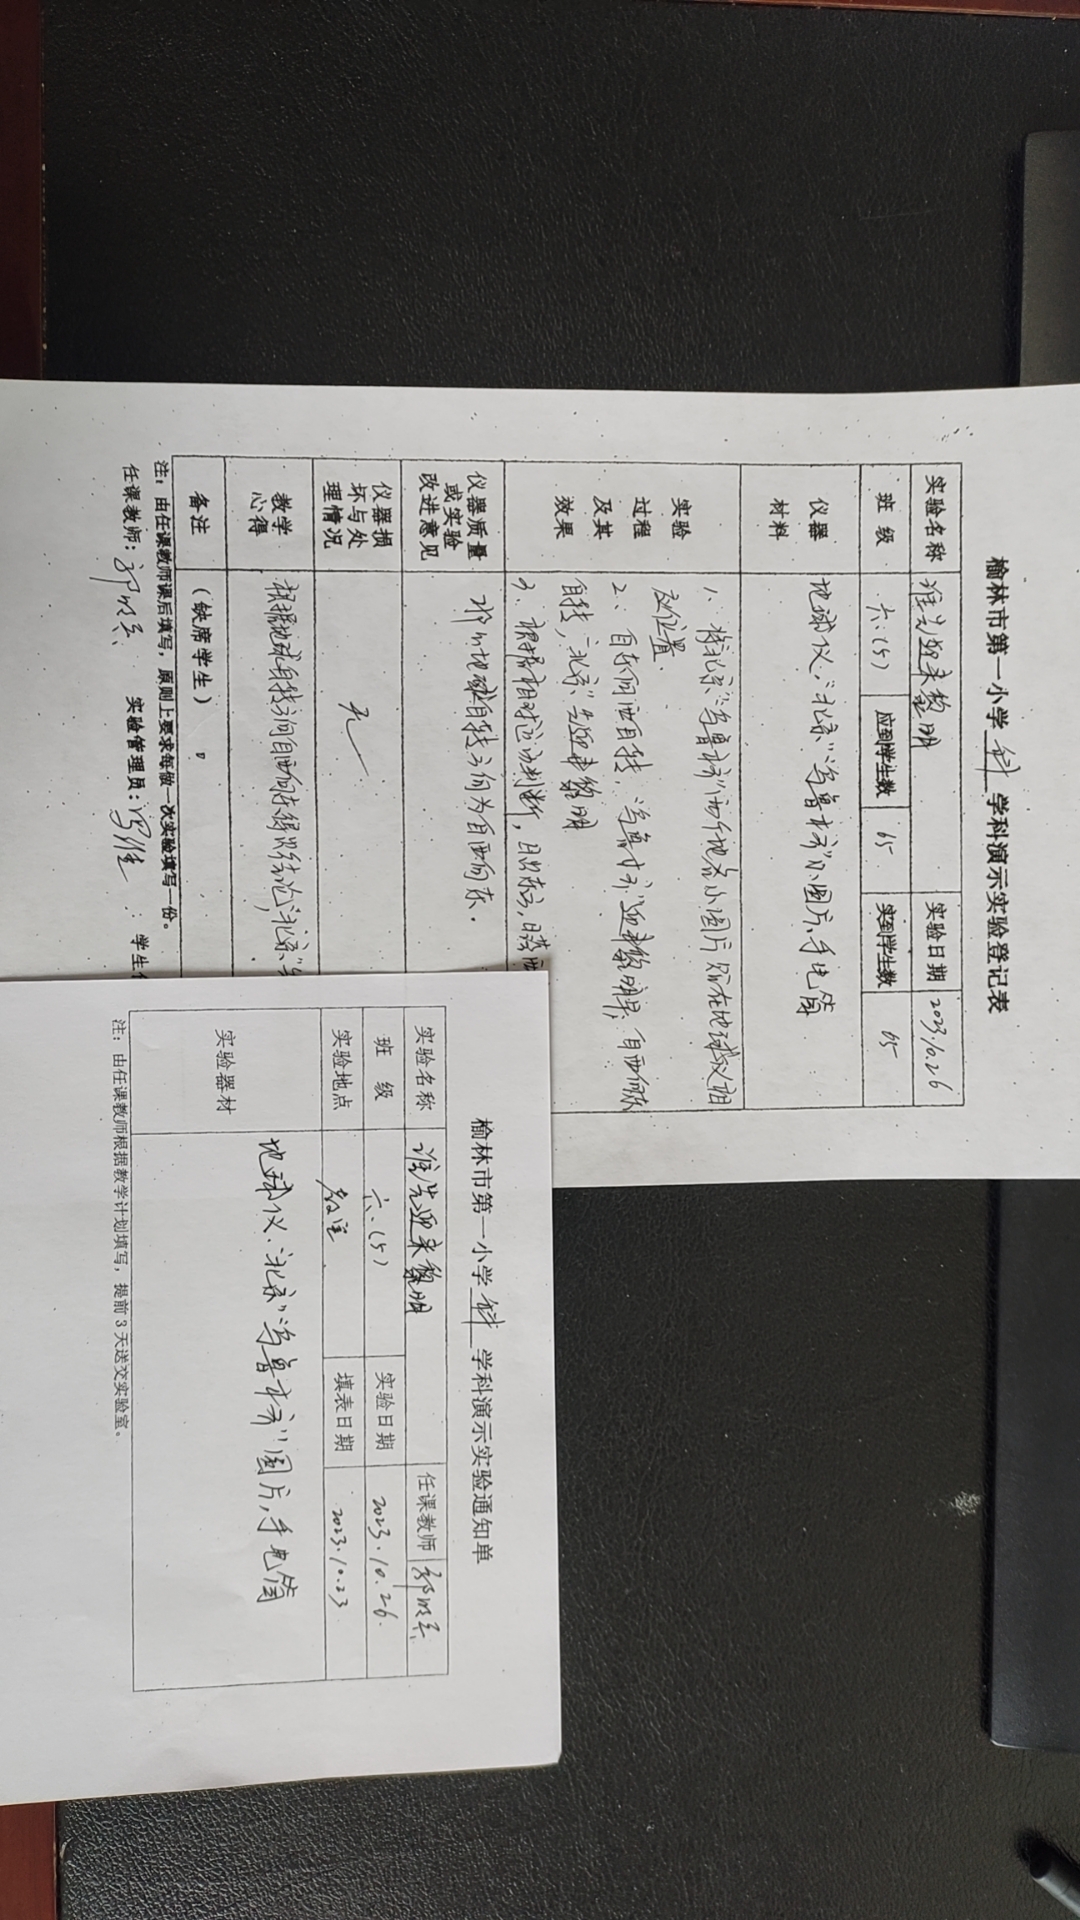 榆林市第一小学科学科演示实验登记表
实验名称 谁先迎来黎明 实验日期 2023.10.26
班 级 六.(5) 应到学生数 65 实到学生数 65
仪器材料 地球仪、"北京""乌鲁木齐"小图片、手电筒
实验过程及其效果
1、将"北京""乌鲁木齐"两个地名小图片贴在地球仪相
应位置.
2、自东向西自转,"乌鲁木齐"迎来黎明早,自西向东
自转,"北京"先迎来黎明
3、根据相对运动判断,日出东方,日落西
仪器质量或实验改进意见 地球自转方向为自西向东.
仪器损坏与处理情况 无
教学心得 根据地球自转方向自西向东得以结论,"北京""乌
备注 (缺席学生)
注:由任课教师课后填写,原则上要求每做一次实验填写一份。
任课教师: 实验管理员: 学生
榆林市第一小学科学科演示实验通知单
实验名称 谁先迎来黎明 任课教师
班 级 六.(5) 实验日期 2023.10.26.
实验地点 教室 填表日期 2023.10.23
实验器材 地球仪.“北京”“乌鲁木齐”图片,手电筒
注:由任课教师根据教学计划填写,提前 3 天送交实验室。